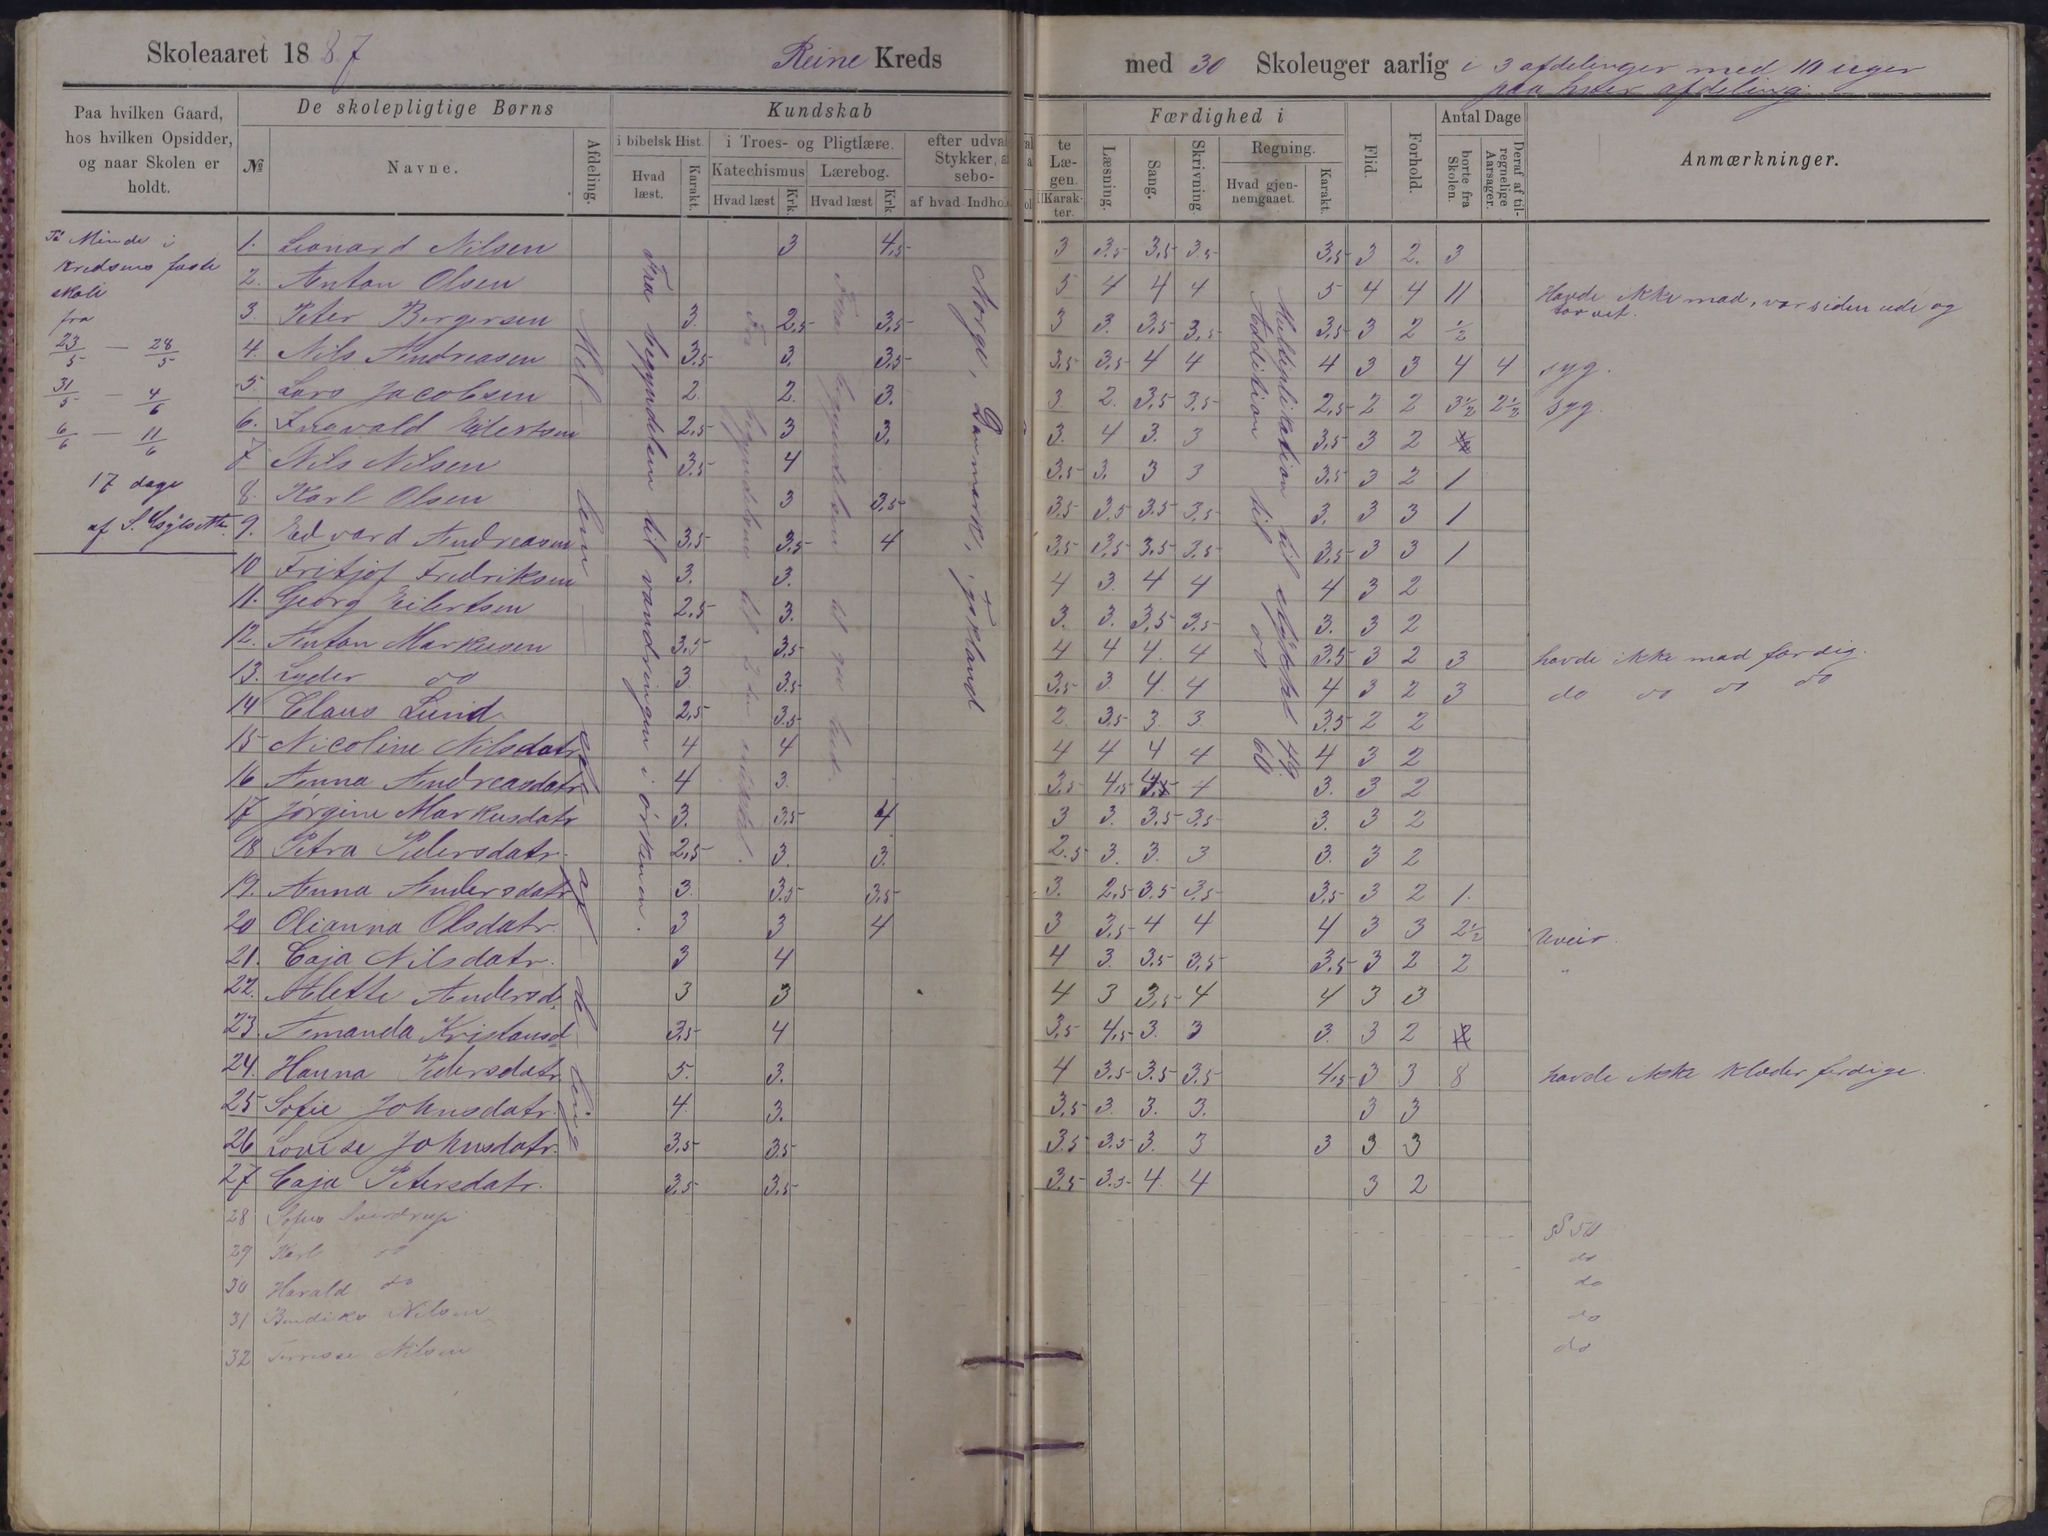 Skoleaaret 1887 Reine Kreds med 30 Skoleuger aarlig i 3 afdelinger med 10 uger
paa hver afdeling.
Paa hvilken Gaard, hos hvilken Opsidder, og naar Skolen er holdt.
De skolepligtige Børns
№ Navne. Afdeling.
Kundskab
i bibelsk Hist. Hvad læst. Karakt.
i Troes- og Pligtlære.
Katechismus Hvad læst Krk.
Lærebog. Hvad læst Krk.
efter udval
Stykker, a
sebo-
af hvad Indhol
te Læ-
gen.
Karak-
ter.
Færdighed i
Læsning. Sang. Skrivning
Regning. Hvad gjen-
nemgaaet. Karakt.
Flid. Forhold.
Antal Dage
borte fra Skolen. Deraf af til-
regnelige Aarsager.
Anmærkninger.
På Minde i
Kredsens faste
skole
fra
23/5 — 28/5
31/5 — 4/6
6/6 — 11/6
17 dage
Mel- lem- ste af- de- ling
Fra begyndelsen til vandringen i ørkenen.
Norge, Danmark, Tyskland
1. Leonard Nilsen 3 4,5 3 3,5 3,5 3,5 3,5 3 2. 3
2. Anton Olsen 5 4 4 4 5 4 4 11 Havde ikke mad, var siden ude og
3 Peter Bergersen 3. 2,5 3,5 3 3. 3,5 3,5 3,5 3 2 ½
4. Nils Andreasen 3,5 3. 3,5 3,5 3,5 4 4 4 3 3 4 4 syg.
5 Lars Jacobsen 2. 2. 3. 3 2. 3,5 3,5 2,5 2 2 3½ 2½ syg.
6. Ingvald Eilertsen 2,5 3 3. 3. 4 3. 3 3,5 3 2
7 Nils Nilsen 3,5 4 3,5 3. 3 3 3,5 3 2 1
8. Karl Olsen 3 3,5 3,5 3,5 3,5 3,5 3. 3 3 1
9. Edvard Andreasen 3,5 3,5 4 3,5 3,5 3,5 3,5 3,5 3 3 1
10 Fritjof Fredriksen 3. 3. 4 3. 4 4 4 3 2
11. Georg Eilertsen 2,5 3. 3. 3. 3,5 3,5 3. 3 2
12. Anton Markusen 3,5 3,5 4 4 4. 4 3,5 3 2 3 havde ikke mad færdig.
13. Lyder do 3 3,5 3,5 3. 4. 4 4 3 2 3 do do do do
14 Claus Lund 2,5 3,5 2. 3,5 3. 3 3,5 2 2
15 Nicoline Nilsdatr 4 4 4 4 4 4 4 3 2
16 Anna Andreasdatr 4 3. 3,5 4,5 4,5 4 3. 3 2
17 Jørgine Markusdatr 3. 3,5 4 3 3. 3,5 3,5 3. 3 2
18 Petra Pedersdatr. 2,5 3. 3. 2,5 3. 3. 3 3. 3 2
19. Anna Andersdatr 3. 3,5 3,5 3. 2,5 3,5 3,5 3,5 3 2 1.
20 Olianna Olsdatr. 3 3 4 3 3,5 4 4 4 3 3 2½ Uveir.
21. Caja Nilsdatr. 3 4 4 3. 3,5 3,5 3,5 3 2 2 "
22. Alette Andersd. 3 3 4 3 3,5 4 4 3 3
23. Amanda Kristansd 3,5 4 3,5 4,5 3. 3 3. 3 2
24. Hanna Pedersdatr 5. 3. 4 3,5 3,5 3,5 4,5 3 3 8 havde ikke klæder færdige.
25 Sofie Johnsdatr. 4. 3. 3,5 3. 3. 3. 3 3
26 Lovise Johnsdatr. 3,5 3,5 3,5 3,5 3. 3 3 3 3
27 Caja Petersdatr. 3,5 3,5 3,5 3,5 4. 4 3 2
28 Sofus Sverdrup § 50
29 Karl do do
30 Harald do do
31 Bendiks Nilsen do
32 Nilsen do